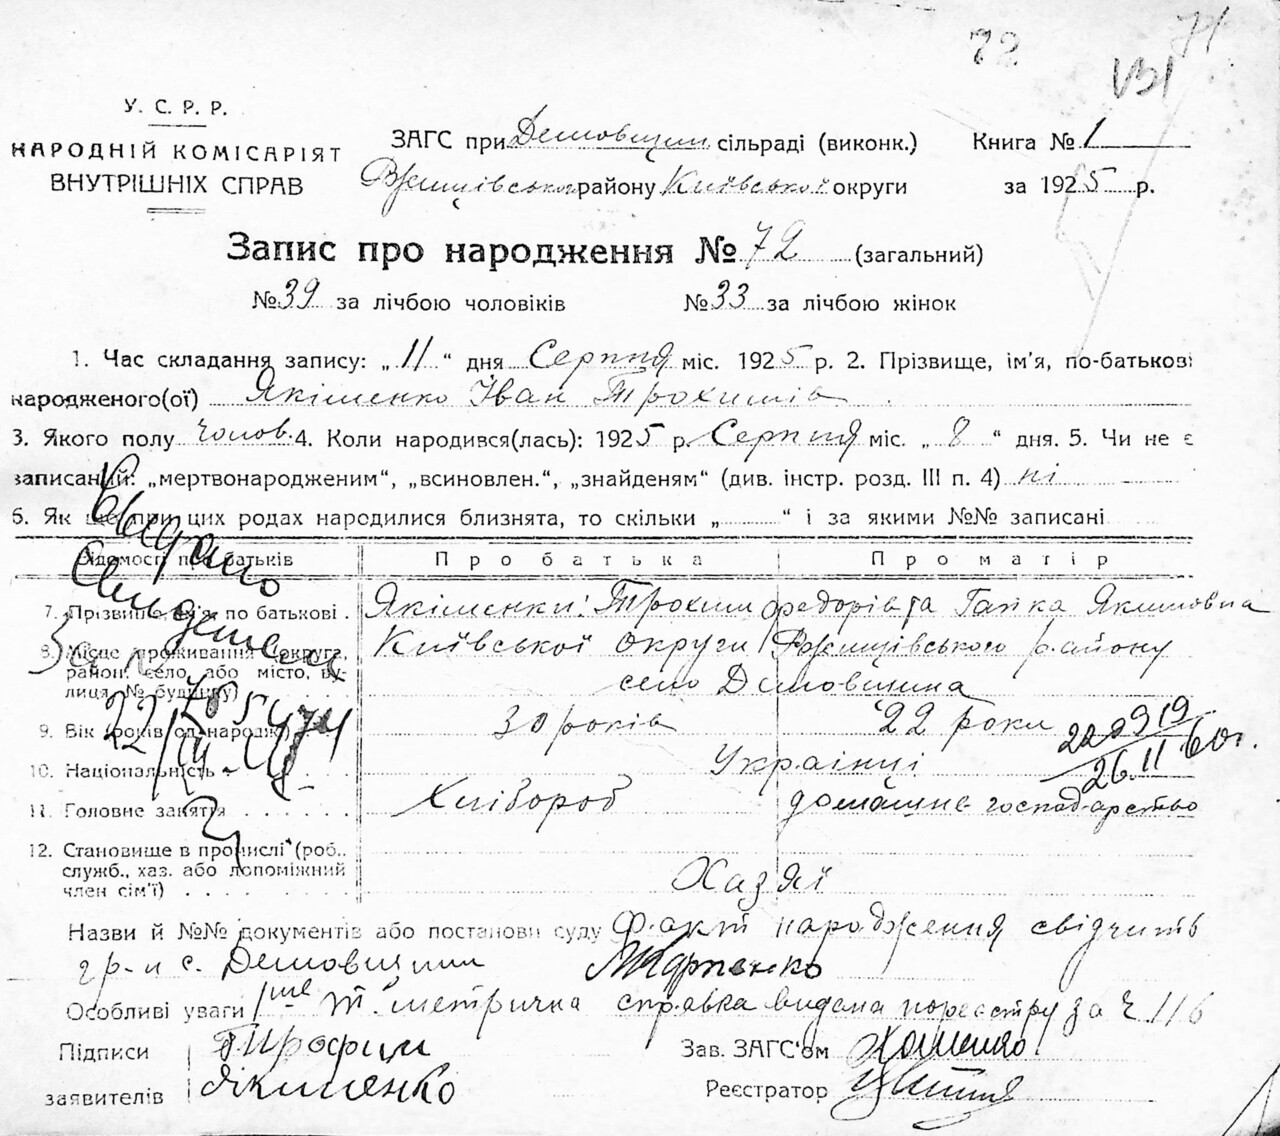 72 71
У. С. Р. Р.
НАРОДНІЙ КОМІСАРІЯТ
ВНУТРІШНІХ СПРАВ
ЗАГС при Демовщин. сільраді (виконк.)
Ржищівського району Київської округи
Книга № 1
за 1925 р.
Запис про народження № 72 (загальний)
№ 39 за лічбою чоловіків № 33 за лічбою жінок
1. Час складання запису: „11“ дня Серпня міс. 1925 р. 2. Прізвище, ім'я, по-батькові
народженого(ої) Якіменко Іван Трохимів
3. Якого полу чолов. 4. Коли народився(лась): 1925 р. Серпня міс. „8“ дня. 5. Чи не є
записаний: „мертвонародженим“, „всиновлен.“, „знайденям“ (див. інстр. розд. III п. 4) ні
6. Як ще при цих родах народилися близнята, то скільки „ “ і за якими №№ записані
Відомості про батьків Про батька Про матір
7. Прізвище, ім'я, по батькові . Якіменки: Трохим Федорів та Гапка Якимовна
8. Місце проживання (округа, район, село, або місто, вулиця, № будинку) Київської округи Ржищівського району
село Демовщина
9. Вік (років од народж.) 30 років 22 роки
10. Національність Українці
11. Головне заняття Хлібороб домашне господарство
12. Становище в промислі (роб.,
служб., хаз. або допоміжний
член сім'ї) Хазяї
Назви й №№ документів або постанови суду Факт народження свідчить
гр-н с. Демовщини Карпенко
Особливі уваги метрична справка видана по реєстру за ч. 116
Підписи Трофим Зав. ЗАГС'ом
заявителів Якименко Реєстратор
Выдано
22 0919
26.11 60г.